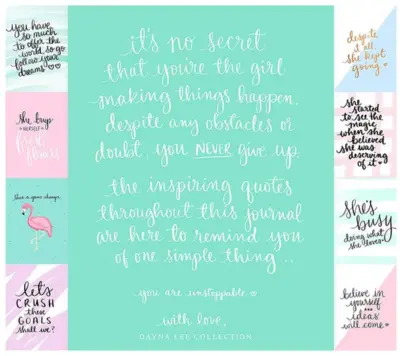 you have
so much
to offer the
world, so go
follow your
dreams
she buys
herself
flowers
she's a game changer
let's
CRUSH
these
GOALS
shall we?
it's no secret
that you're the girl
making things happen.
despite any obstacles or
doubt, you NEVER give up.
the inspiring quotes
throughout this journal
are here to remind you
of one simple thing...
you are unstoppable
with love,
DAYNA LEE COLLECTION
despite
it all,
she kept
going
she
started
to see the
magic
when she
believed
she was
deserving
of it.
she's
busy
doing what
she loves
believe in
yourself
... and
ideas
will come